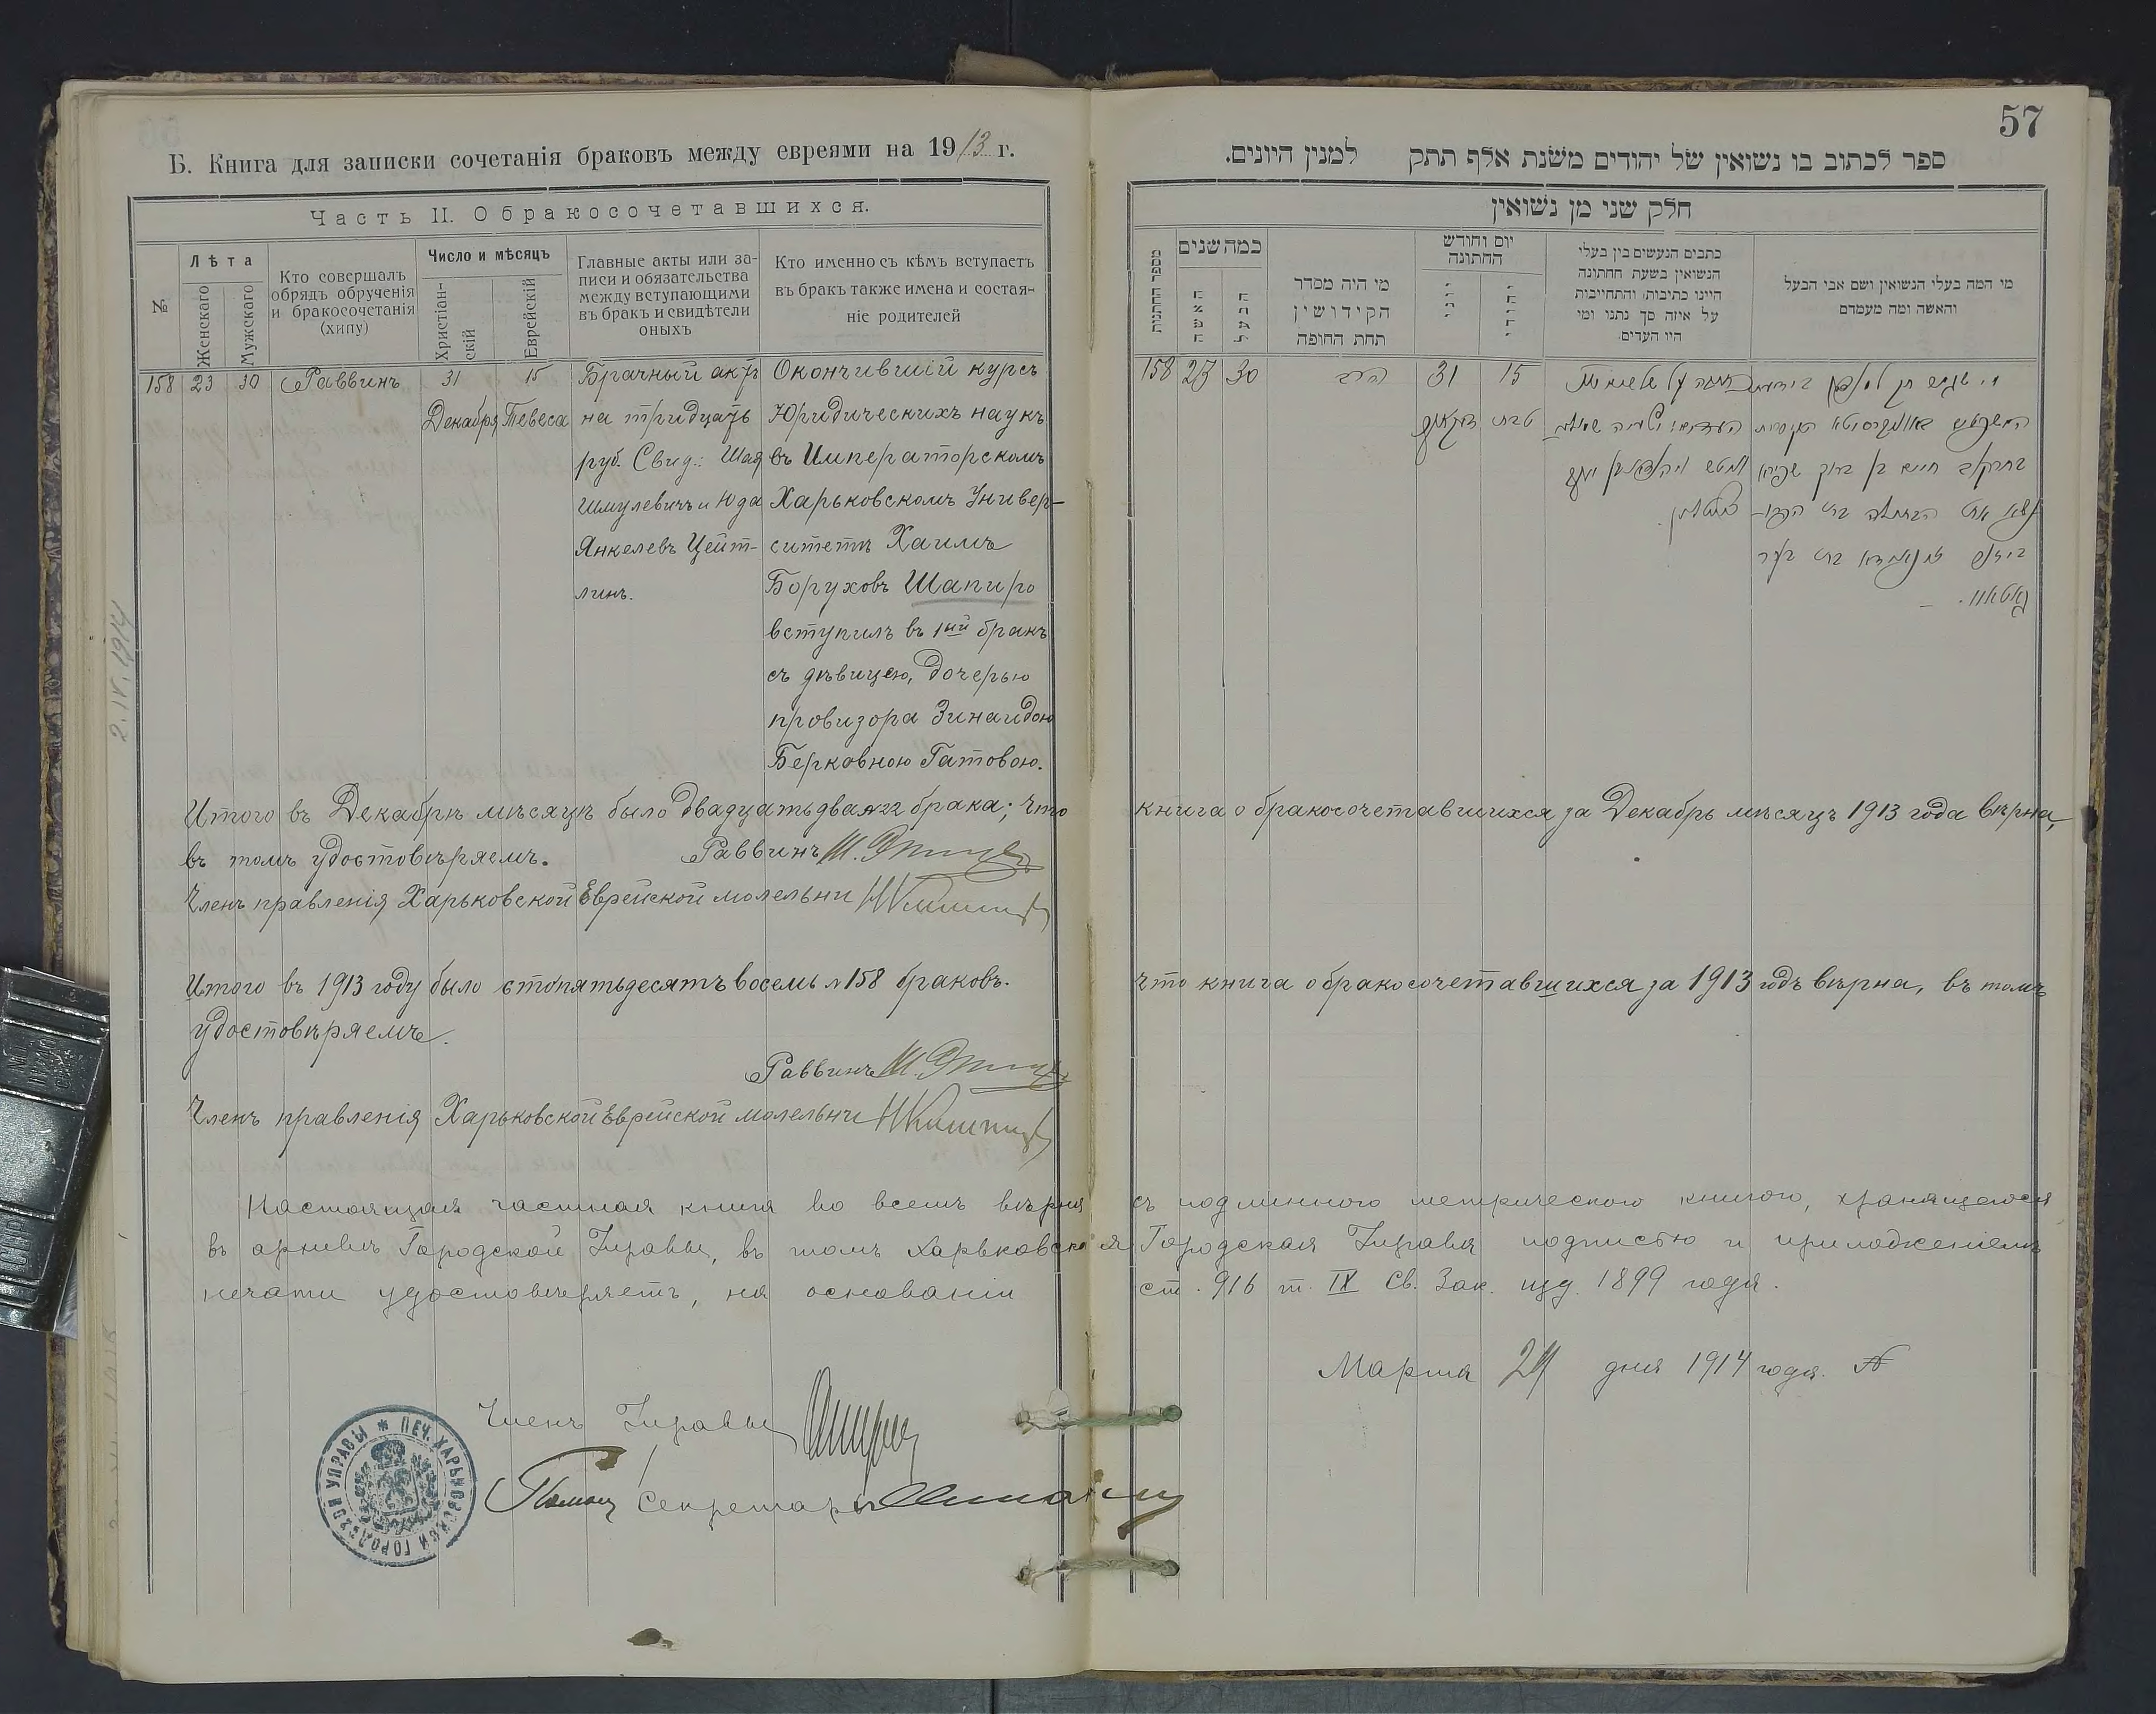 57
Б. Книга для записки сочетанія браковъ между евреями на 1913 г.
Часть II. О бракосочетавшихся.
№
Лѣта
Женскаго
Мужскаго
Кто совершалъ
обрядъ обрученія
и бракосочетанія
(хипу)
Число и мѣсяцъ
Христіан-
скій
Еврейскій
Главные акты или за-
писи и обязательства
между вступающими
въ бракъ и свидѣтели
оныхъ
Кто именно съ кѣмъ вступаетъ
въ бракъ также имена и состоя-
ніе родителей
158 23 30 Раввинъ
31
Декабря
15
Тевеса
Брачный актъ
на тридцать
руб. Свид.: Шая
Шмулевичъ и Юда
Янкелевъ Цейт-
линъ.
Окончившій курсъ
Юридическихъ наукъ
въ Императорскомъ
Харьковскомъ Универ-
ситетѣ Хаимъ
Боруховъ Шапиро
вступилъ въ 1ый бракъ
съ дѣвицею, дочерью
провизора Зинаидою
Берковною Гатовою.
Итого въ Декабрѣ мѣсяцѣ было двадцать два 22 брака; что книга о бракосочетавшихся за Декабрь мѣсяцъ 1913 года вѣрна,
въ томъ удостовѣряемъ. Раввинъ
Членъ правленія Харьковской Еврейской молельни
Итого въ 1913 году было сто пятьдесятъ восемь 158 браковъ. Что книга о бракосочетавшихся за 1913 годъ вѣрна, въ томъ
удостовѣряемъ.
Раввинъ
Членъ правленія Харьковской Еврейской молельни
Настоящая частная книга во всемъ вѣрна съ подлинною метрическою книгою, хранящеюся
въ архивѣ Городской Управы, въ томъ Харьковская Городская Управа подписью и приложеніемъ
печати удостовѣряетъ, на основаніи ст. 916 т. IX Св. Зак. изд. 1899 года.
Марта 29 дня 1914 года. №
Членъ Управы
Секретаря
ПЕЧ. ХАРЬКОВСКОЙ ГОРОДСКОЙ УПРАВЫ
2.IV.1914
ספר לכתוב בו נשואין של יהודים משנת אלף תתק למנין היונים.
חלק שני מן נשואין
מספר החתונות
כמה שנים
האשה
הבעל
מי היה מסדר
הקידושין
תחת החופה
יום וחודש
החתונה
יוני
יהודי
כתבים הנעשים בין בעלי
הנשואין בשעת חתונה
היינו כתיבות והתחייבות
על איזה סך נתנו ומי
היו העדים
מי המה בעלי הנשואין ושם אבי הבעל
והאשה ומה מעמדם
158 23 30
הרב
31
דעקאבר
15
טבת